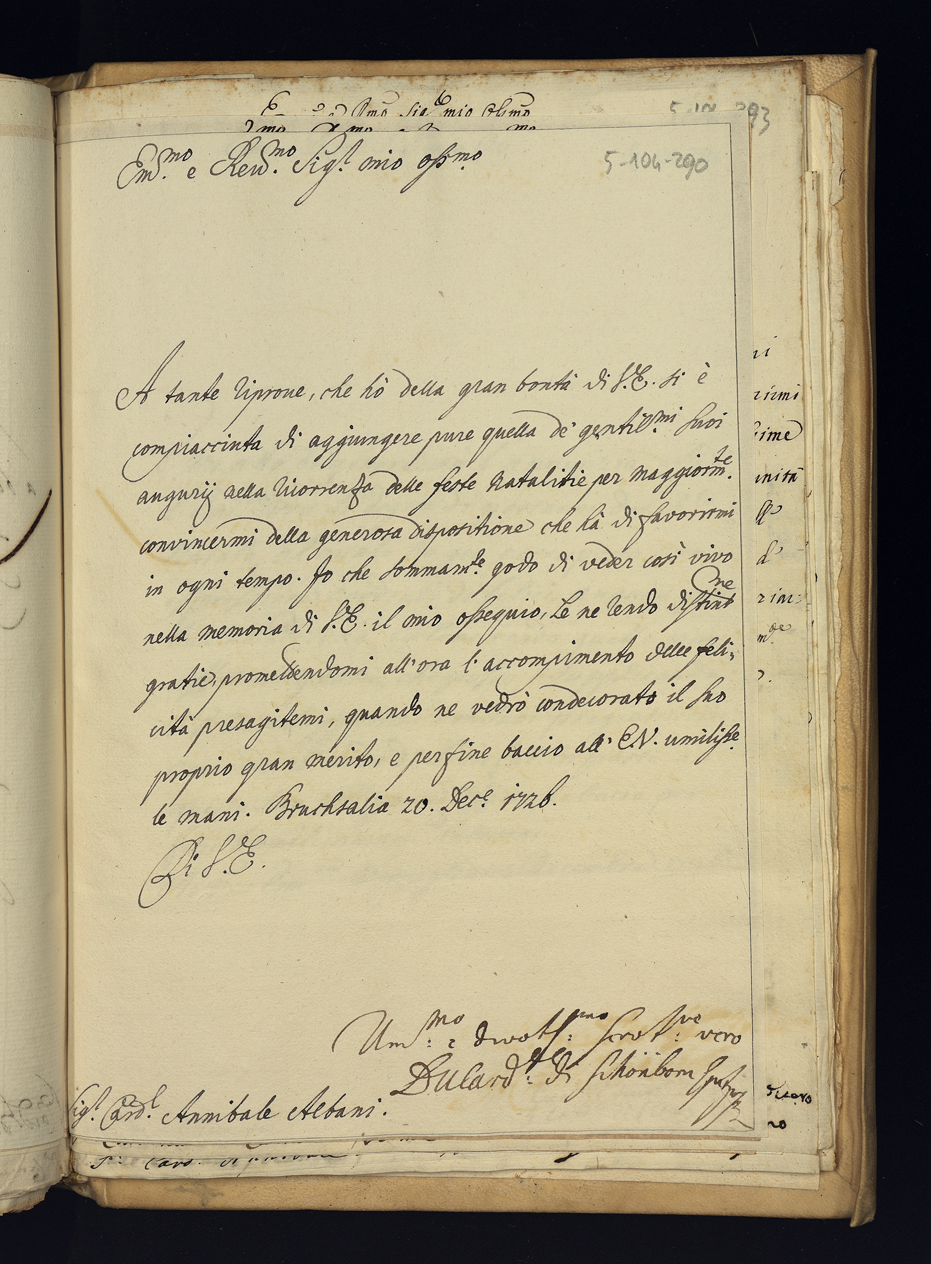 5-104-293
5-104-290
Em.mo e Reu.mo Sig.r mio oss.mo
A tante riproue, che hò della gran bontà di V.E. si è
compiacciuta di aggiungere pure quella de' gentil.mi suoi
augurij nella ricorrenza delle feste Natalitie per maggiorm.te
convincermi della generosa dispositione che hà di favorirmi
in ogni tempo. Io che sommam.te godo di veder così vivo
nella memoria di V.E. il mio ossequio, Le ne rendo distint.me
gratie, promettendomi all'ora l'accompimento delle feli=
cità presagitemi, quando ne vedrò condecorato il suo
proprio gran merito, e per fine baccio all' E.V. umiliss.e
le mani. Bruchsalia 20. Dec.e 1726.
Di V.E.
Um.mo e divotiss.mo serv.re vero
Card.le di Schönborn
Sig.r Card.l Annibale Albani.